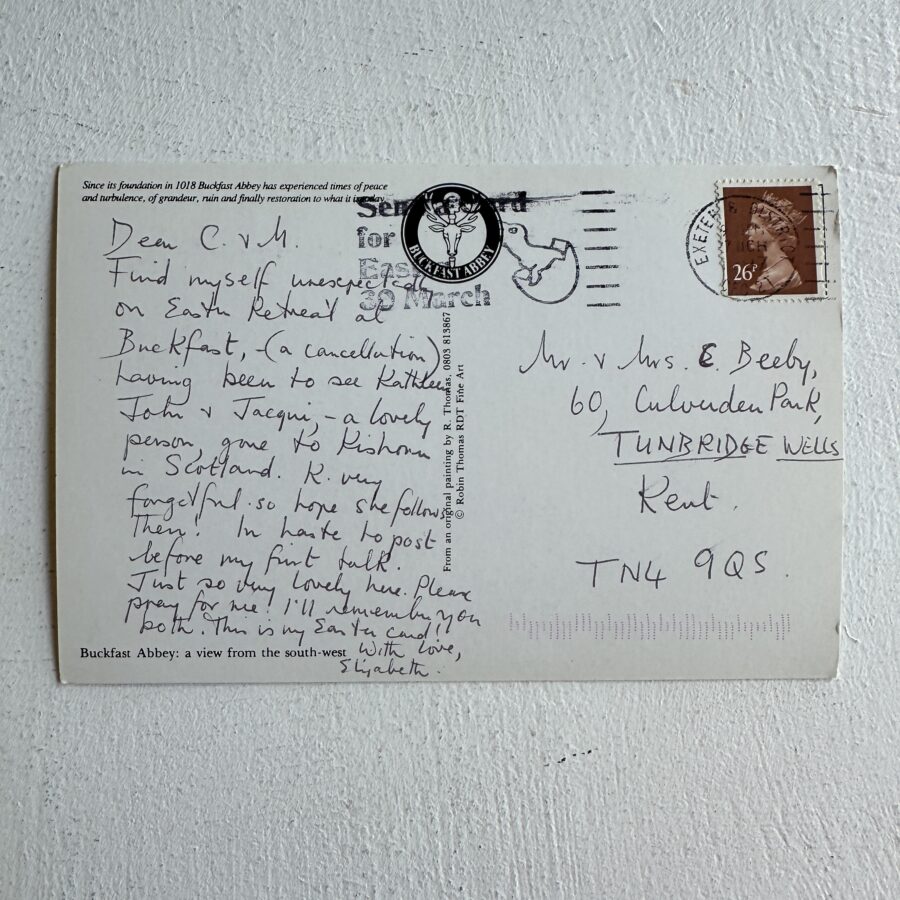 Since its foundation in 1018 Buckfast Abbey has experienced times of peace
and turbulence, of grandeur, ruin and finally restoration to what it is today.
Send a Card
for
Easter
30 March
BUCKFAST ABBEY
EXETER & DISTRICT
MCH
26P
Dear C. & M.
Find myself unexpectedly
on Easter Retreat at
Buckfast, - (a cancellation)
having been to see Kathleen
John & Jacqui, - a lovely
person, gone to Kishorn
in Scotland. K. very
forgetful. so hope she follows
them! In haste to post
before my first talk.
Just so very lovely here. Please
pray for me! I'll remember you
both. This is my Easter card!!
With love,
Elizabeth.
Buckfast Abbey: a view from the south-west
From an original painting by R. Thomas, 0803 813867
© Robin Thomas RDT Fine Art
Mr. & Mrs. C. Beeby,
60, Culverden Park,
TUNBRIDGE WELLS
Kent.
TN4 9QS.